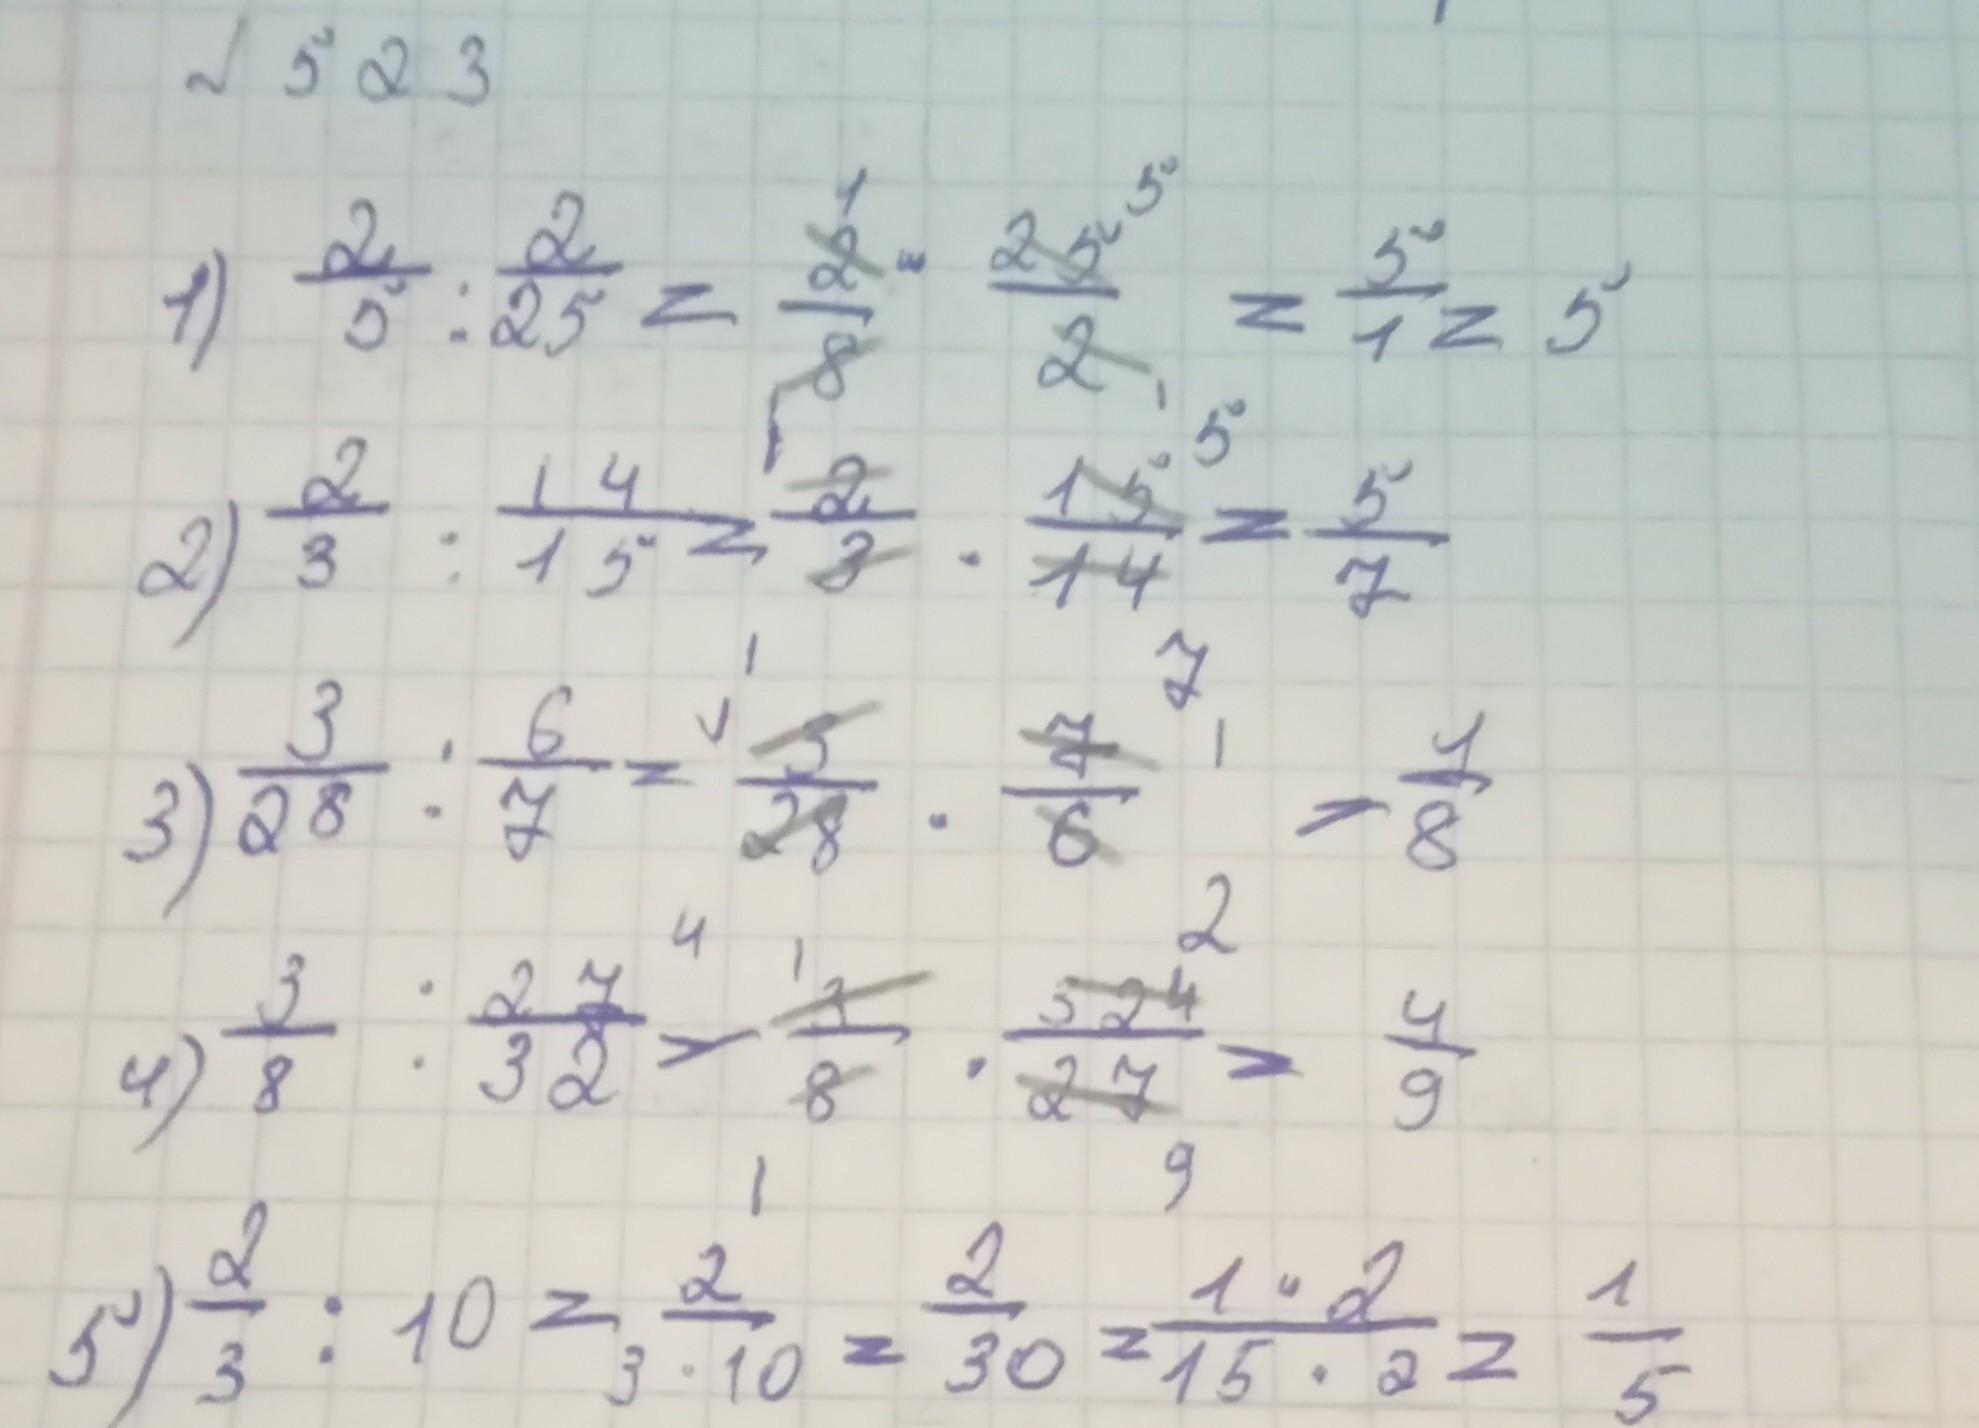 √ 523
1) 2/5 : 2/25 = 2/8 · 25/2 = 5/1 = 5
2) 2/3 : 14/15 = 2/3 · 15/14 = 5/7
3) 3/28 : 6/7 = 3/28 · 7/6 = 1/8
4) 3/8 : 27/32 = 3/8 · 32/27 = 4/9
5) 2/3 : 10 = 2/(3 · 10) = 2/30 = (1 · 2)/(15 · 2) = 1/5